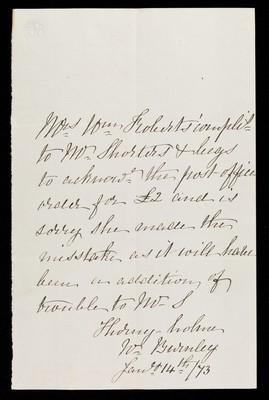 Mrs Wm Roberts' complits
to Mr Shorters & begs
to acknowe the post office
order for £2 and is
sorry she made the
misstake as it will have
been an addition of
trouble to Mr S
Thorny-holme
Nr Burnley
Jany 14th/73